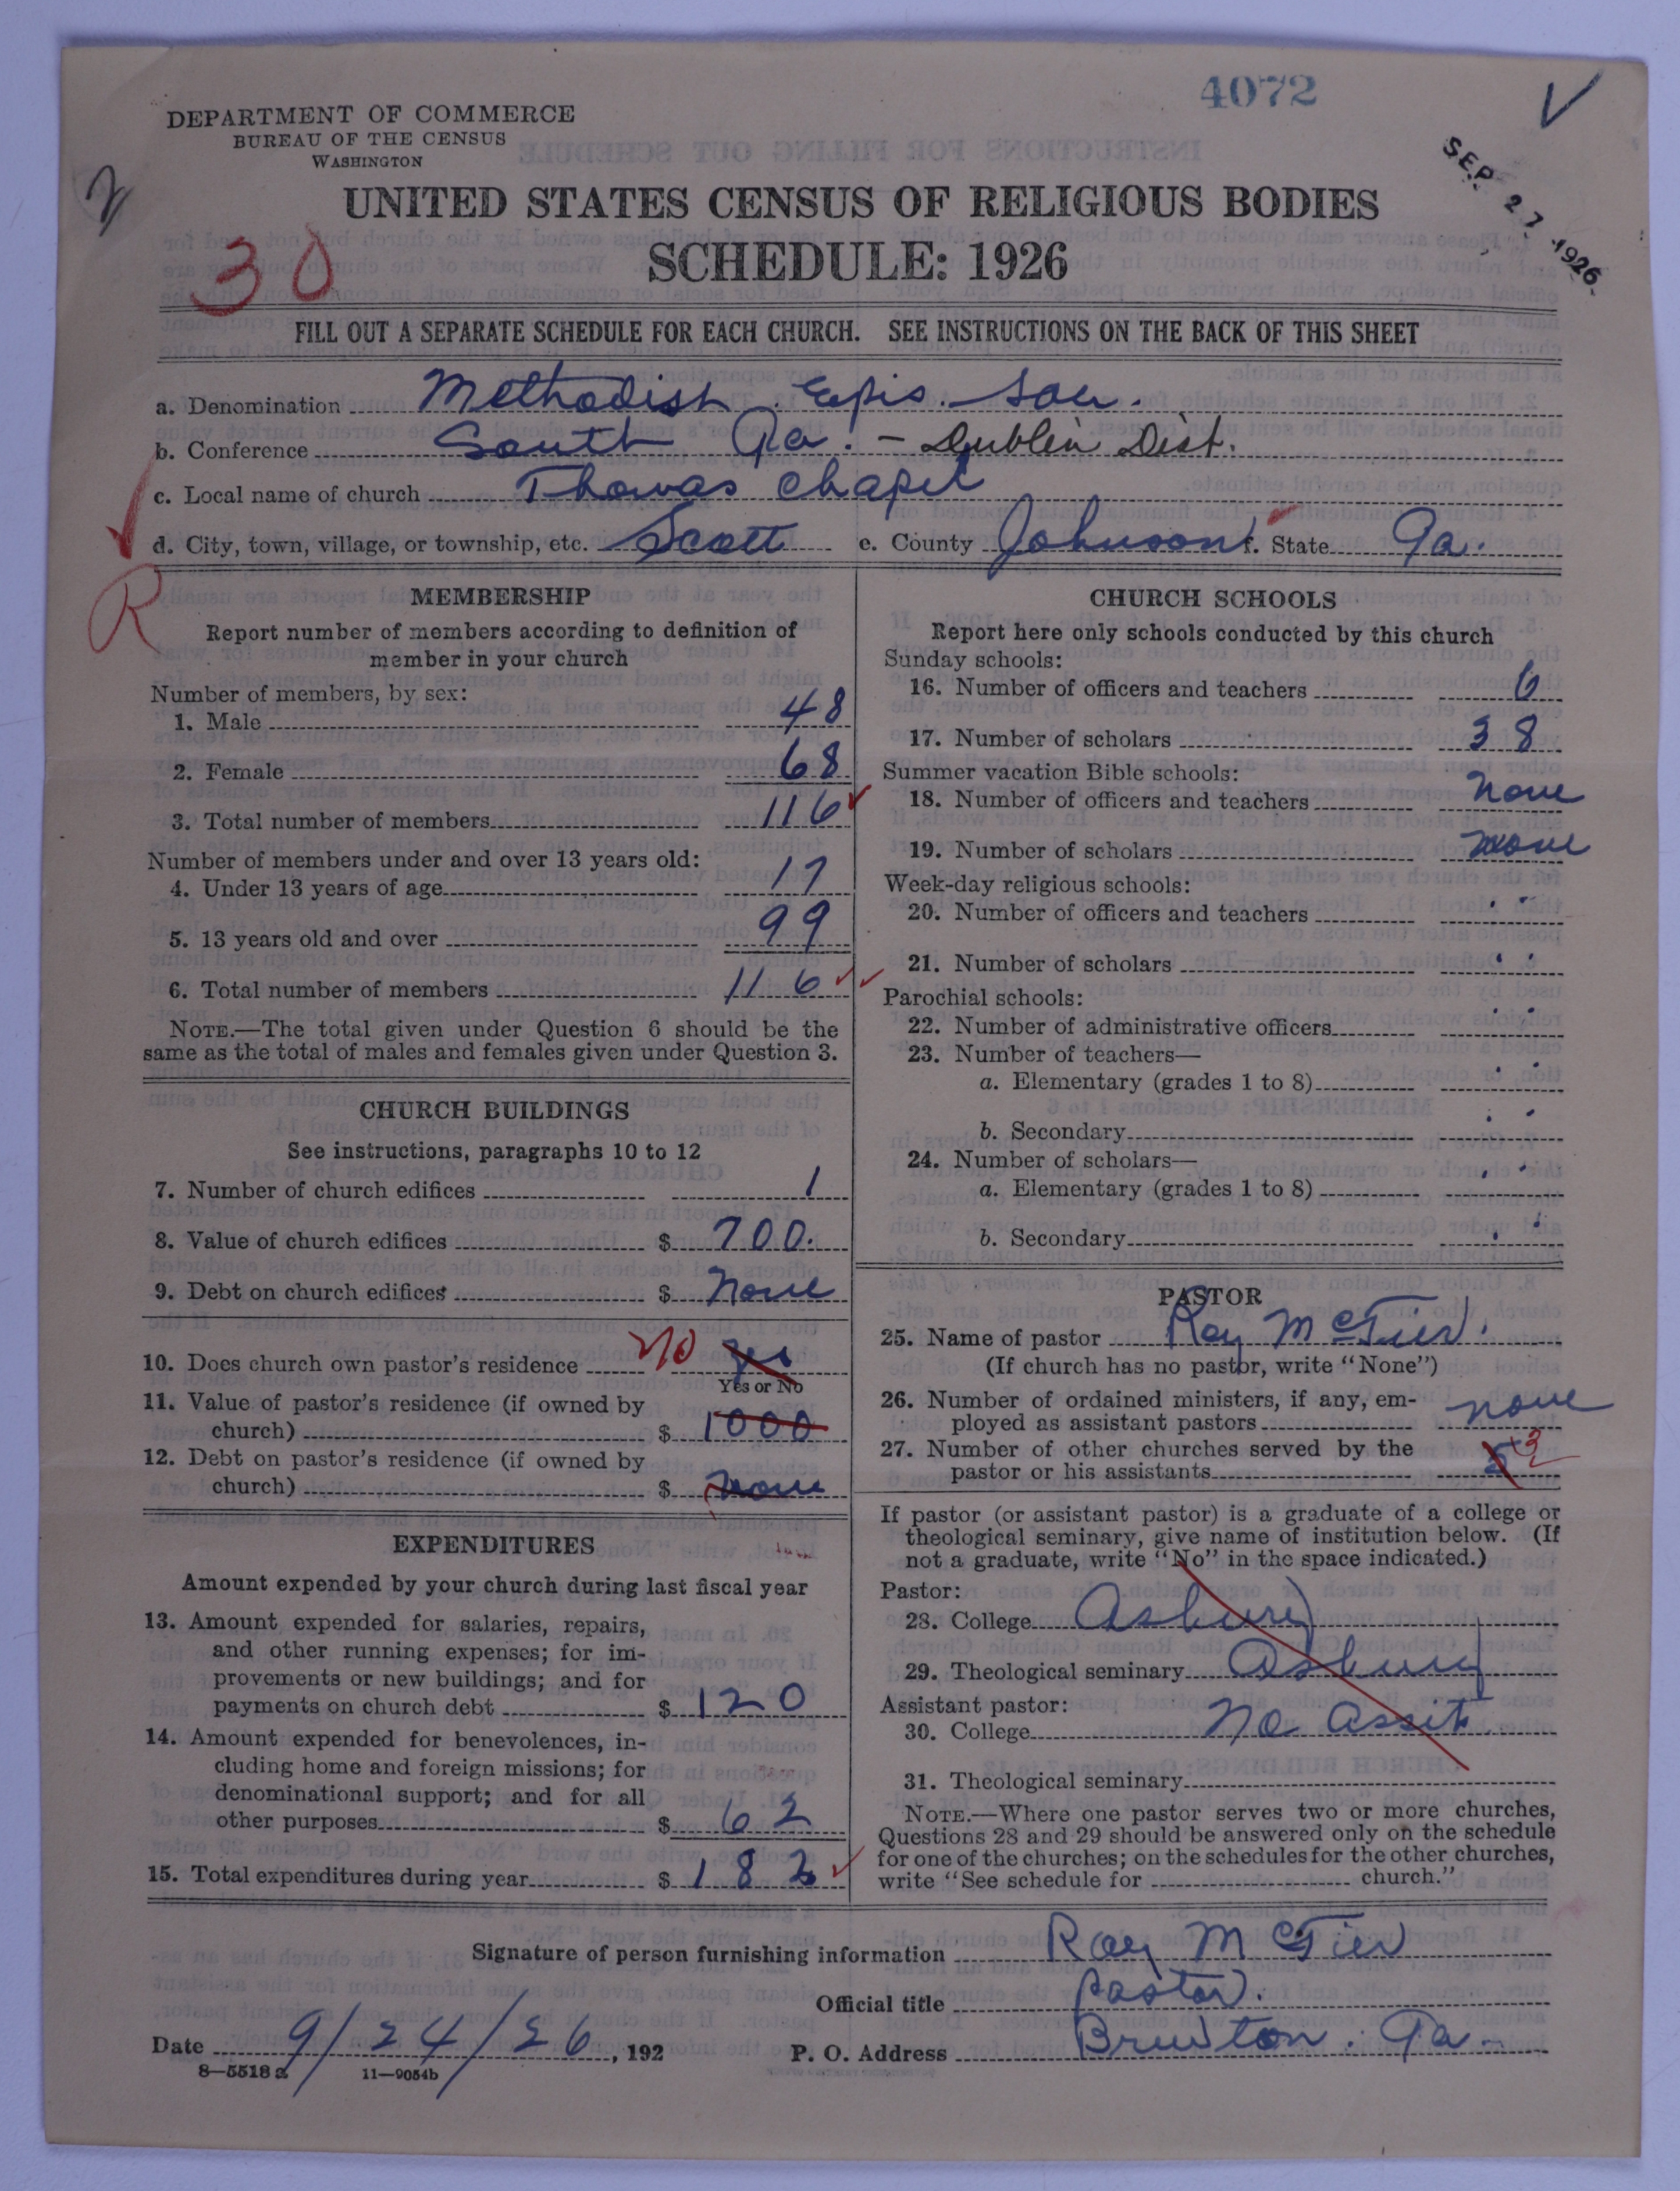 4072
V
DEPARTMENT OF COMMERCE
BUREAU OF THE CENSUS
WASHINGTON
SEP 27 1926
2
UNITED STATES CENSUS OF RELIGIOUS BODIES
30
SCHEDULE: 1926
FILL OUT A SEPARATE SCHEDULE FOR EACH CHURCH. SEE INSTRUCTIONS ON THE BACK OF THIS SHEET
a. Denomination Methodist Epis. Sou.
b. Conference South Ga. - Dublin Dist.
c. Local name of church Thomas Chapel
d. City, town, village, or township, etc. Scott e. County Johnson f. State Ga.
R
MEMBERSHIP
Report number of members according to definition of
member in your church
Number of members, by sex:
1. Male 48
2. Female 68
3. Total number of members 116
Number of members under and over 13 years old:
4. Under 13 years of age 17
5. 13 years old and over 99
6. Total number of members 116
NOTE.—The total given under Question 6 should be the
same as the total of males and females given under Question 3.
CHURCH BUILDINGS
See instructions, paragraphs 10 to 12
7. Number of church edifices 1
8. Value of church edifices $ 700.
9. Debt on church edifices $ None
10. Does church own pastor's residence No Yes
Yes or No
11. Value of pastor's residence (if owned by
church) $ 1000
12. Debt on pastor's residence (if owned by
church) $ None
EXPENDITURES
Amount expended by your church during last fiscal year
13. Amount expended for salaries, repairs,
and other running expenses; for im-
provements or new buildings; and for
payments on church debt $ 120
14. Amount expended for benevolences, in-
cluding home and foreign missions; for
denominational support; and for all
other purposes $ 62
15. Total expenditures during year $ 182
CHURCH SCHOOLS
Report here only schools conducted by this church
Sunday schools:
16. Number of officers and teachers 6
17. Number of scholars 38
Summer vacation Bible schools:
18. Number of officers and teachers None
19. Number of scholars None
Week-day religious schools:
20. Number of officers and teachers " "
21. Number of scholars " "
Parochial schools:
22. Number of administrative officers " "
23. Number of teachers—
a. Elementary (grades 1 to 8) " "
b. Secondary " "
24. Number of scholars—
a. Elementary (grades 1 to 8) " "
b. Secondary " "
PASTOR
25. Name of pastor Roy McTier.
(If church has no pastor, write "None")
26. Number of ordained ministers, if any, em-
ployed as assistant pastors None
27. Number of other churches served by the
pastor or his assistants 5 3
If pastor (or assistant pastor) is a graduate of a college or
theological seminary, give name of institution below. (If
not a graduate, write "No" in the space indicated.)
Pastor:
28. College Asbury
29. Theological seminary Asbury
Assistant pastor:
30. College No Assit
31. Theological seminary
NOTE.—Where one pastor serves two or more churches,
Questions 28 and 29 should be answered only on the schedule
for one of the churches; on the schedules for the other churches,
write "See schedule for church."
Signature of person furnishing information Roy McTier
Official title Pastor.
Date 9/24/26, 192 P. O. Address Brewton. Ga.
8—5518a 11—9054b